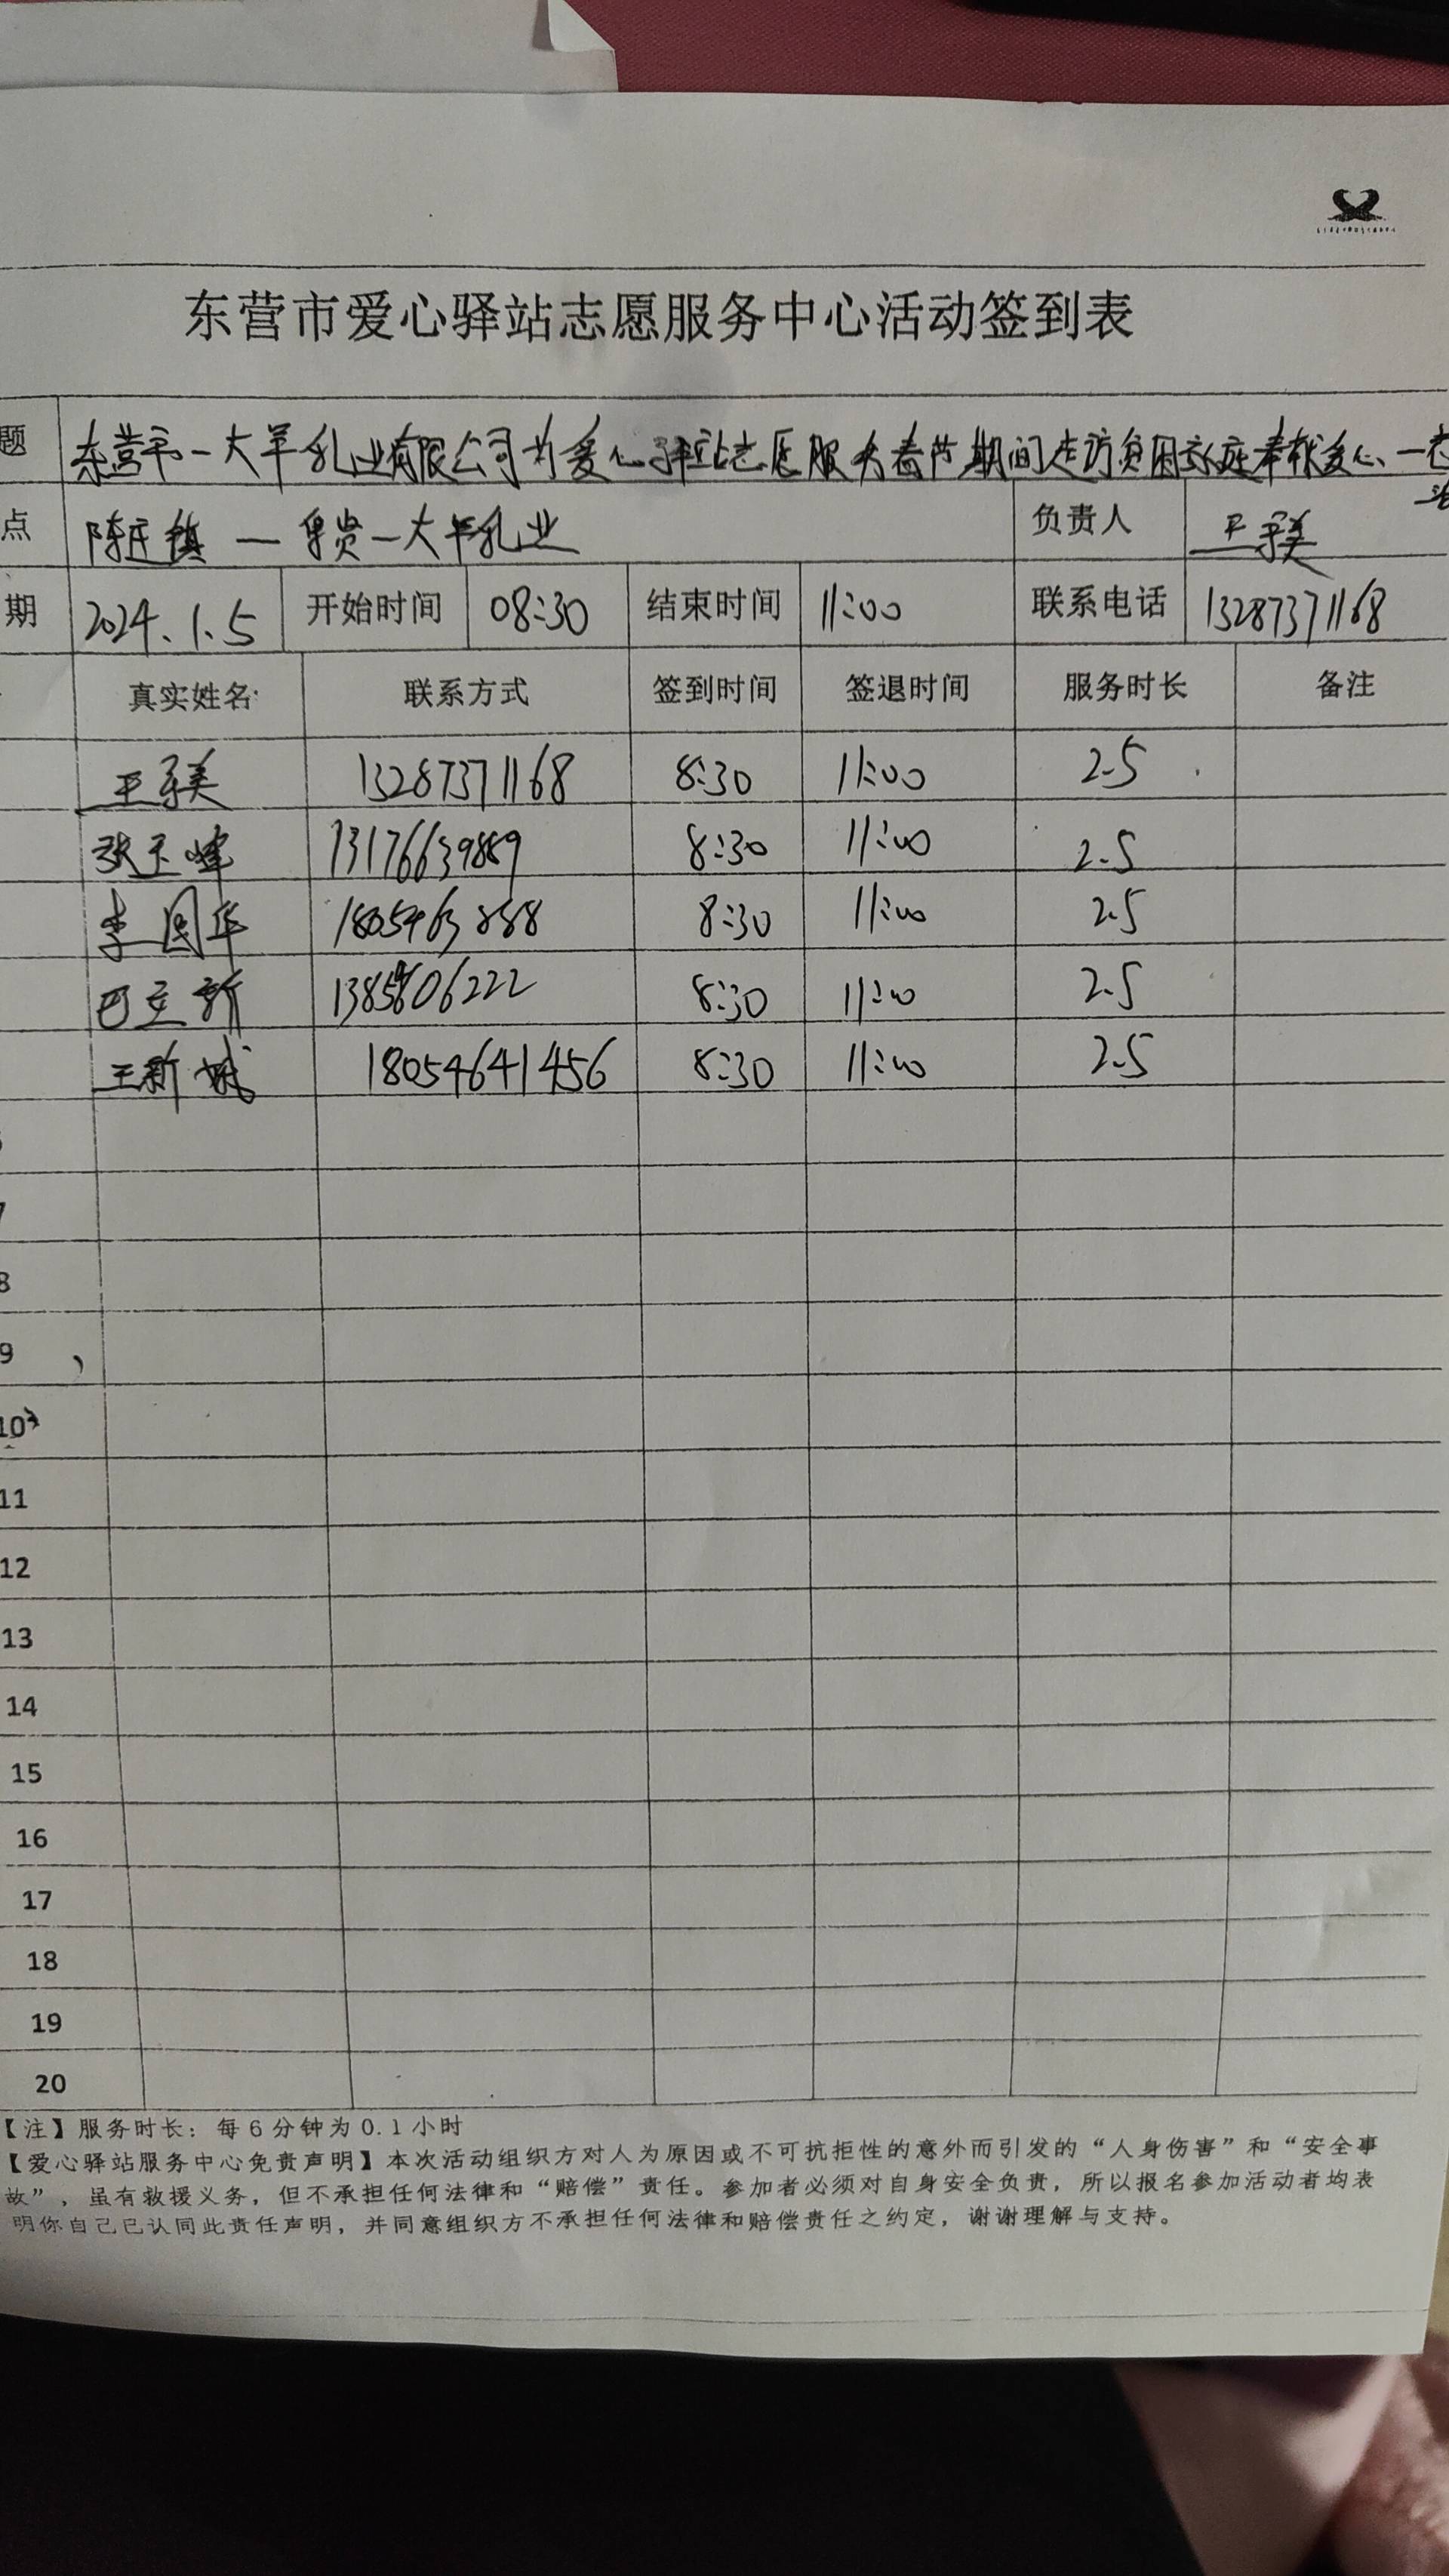 东营市爱心驿站志愿服务中心活动签到表
题 东营市一大羊乳业有限公司为爱心驿站志愿服务春节期间走访贫困家庭奉献爱心、一
点 陈庄镇 — 一大羊乳业 负责人 王
期 2024.1.5 开始时间 08:30 结束时间 11:00 联系电话 13287371168
真实姓名 联系方式 签到时间 签退时间 服务时长 备注
王 13287371168 8:30 11:00 2.5
张玉峰 13176639889 8:30 11:00 2.5
李国华 8:30 11:00 2.5
巴立新 8:30 11:00 2.5
王新 18054641456 8:30 11:00 2.5
7
8
9
10
11
12
13
14
15
16
17
18
19
20
【注】服务时长：每6分钟为0.1小时
【爱心驿站服务中心免责声明】本次活动组织方对人为原因或不可抗拒性的意外而引发的“人身伤害”和“安全事
故”，虽有救援义务，但不承担任何法律和“赔偿”责任。参加者必须对自身安全负责，所以报名参加活动者均表
明你自己已认同此责任声明，并同意组织方不承担任何法律和赔偿责任之约定，谢谢理解与支持。